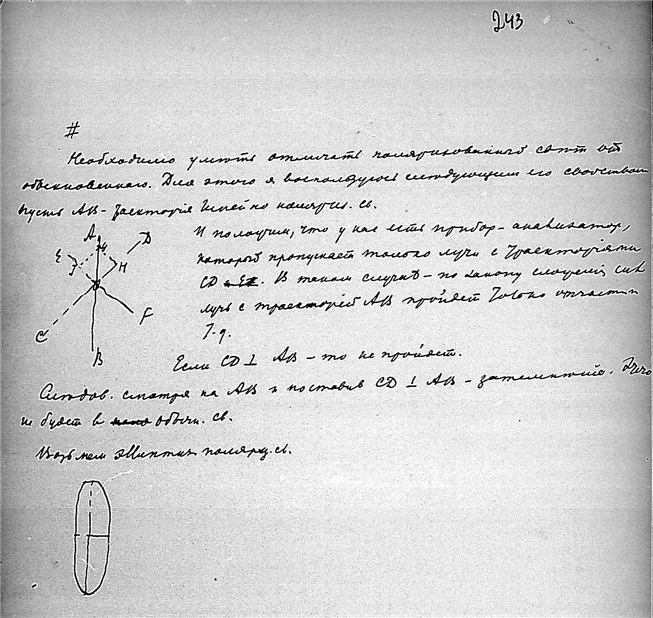 243
#
Необходимо умѣть отличать поляризованный свѣт от
обыкновеннаго. Для этого я воспользуюсь слѣдующим его свойством
пусть AB – траекторія линейно поляриз. св.
И положим, что у нас есть прибор – анализатор,
который пропускает только лучи с траекторіями
CD. В таком случаѣ – по закону сложенія сил
лучъ с траекторіей AB пройдет только отчасти
A
D
E
H
C
F
B
Если CD ⊥ AB – то не пройдет.
Слѣдов. смотря на AB и поставив CD ⊥ AB – затемненіе. Чего
не будет в обычн. св.
Возьмем эллиптич. поляриз. св.